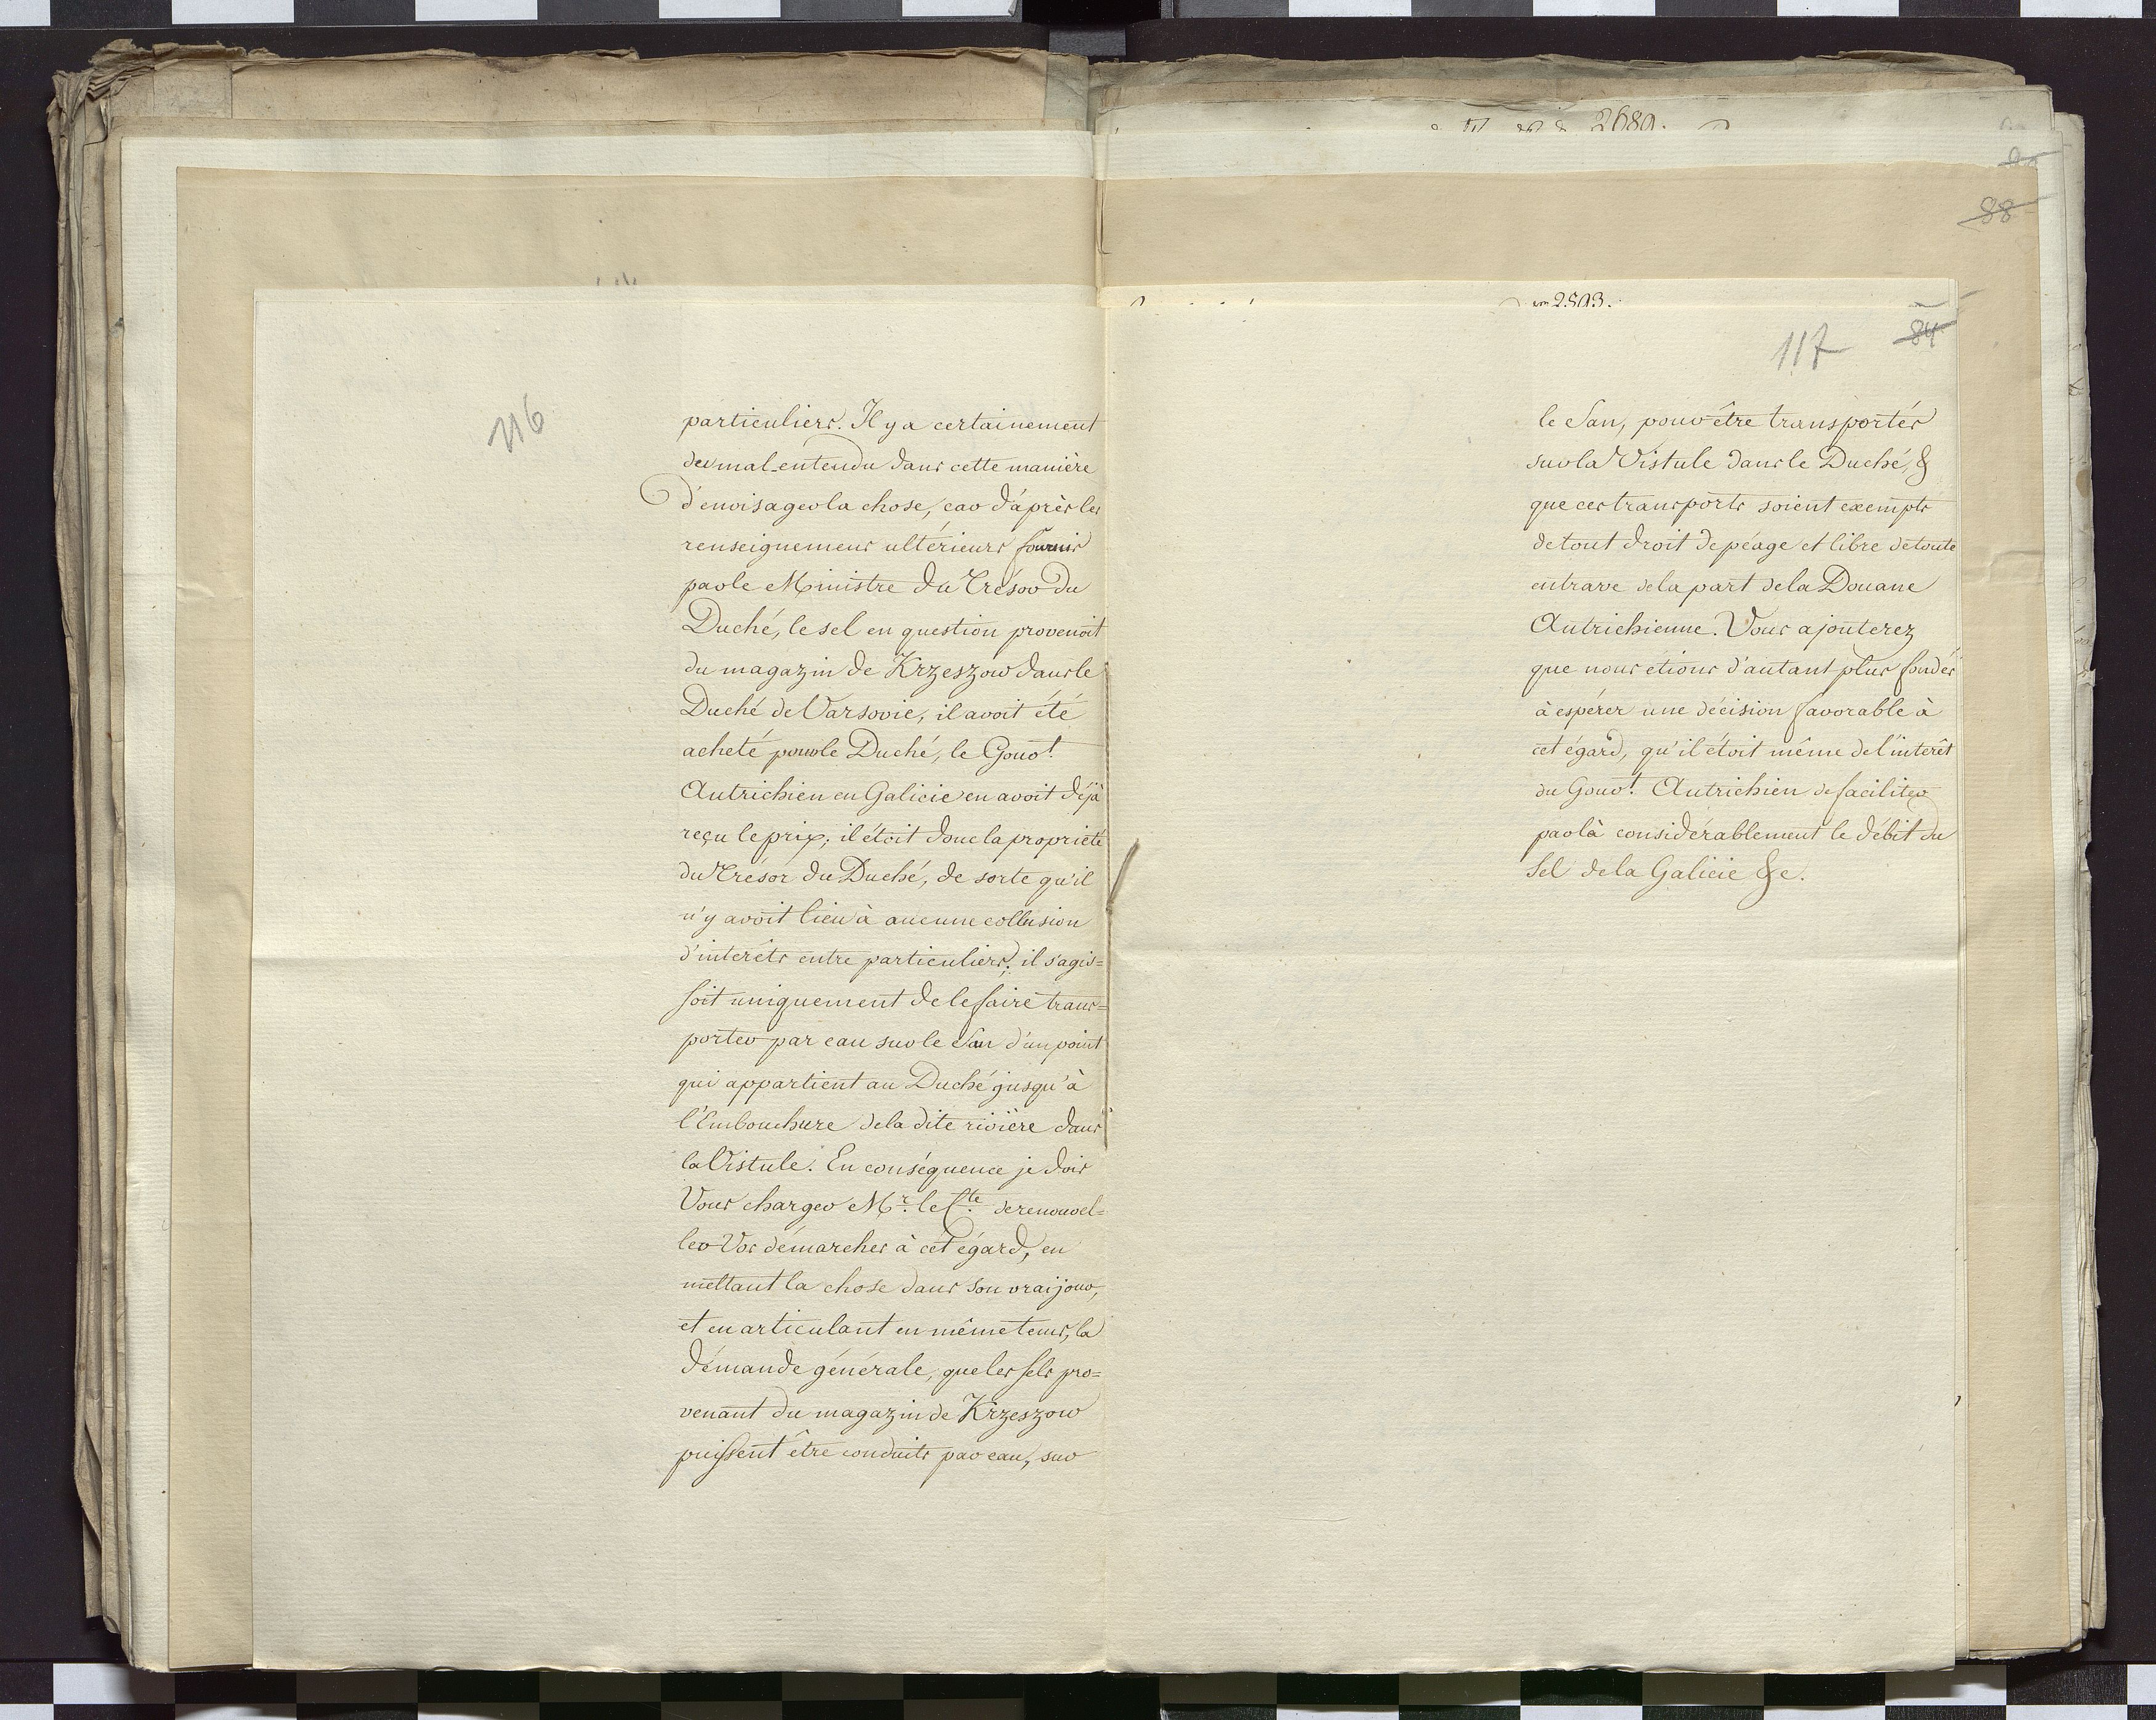 116
particuliers. Il y a certainement
du mal-entendu dans cette manière
d'envisager la chose, car d'après les
renseignemens ultérieurs fournis
par le Ministre du Trésor du
Duché, le sel en question provenoit
du magazin de Krzeszow dans le
Duché de Varsovie, il avoit été
acheté pour le Duché, le Gouvt.
Autrichien en Galicie en avoit déjà
reçu le prix; il étoit donc la propriété
du Trésor du Duché, de sorte qu'il
n'y avoit lieu à aucune collusion
d'intérêts entre particuliers; il s'agis=
soit uniquement de le faire trans=
porter par eau sur le San d'un point
qui appartient au Duché jusqu'à
l'Embouchure de la dite rivière dans
la Vistule. En conséquence je dois
Vous charger Mr. le Cte. de renouvel=
ler Vos démarches à cet égard, en
mettant la chose dans son vrai jour,
et en articulant en même tems, la
démande générale, que les sels pro=
venant du magazin de Krzeszow
puissent être conduits par eau, sur
2689.
88
2503.
117
84
le San, pour être transportés
sur la Vistule dans le Duché, &
que ces transports soient exempts
de tout droit de péage et libre de toute
entrave de la part de la Douane
Autrichienne. Vous ajouterez
que nous étions d'autant plus fondés
à espérer une décision favorable à
cet égard, qu'il étoit même de l'intérêt
du Gouvt. Autrichien de faciliter
par là considérablement le débit du
Sel de la Galicie &c.